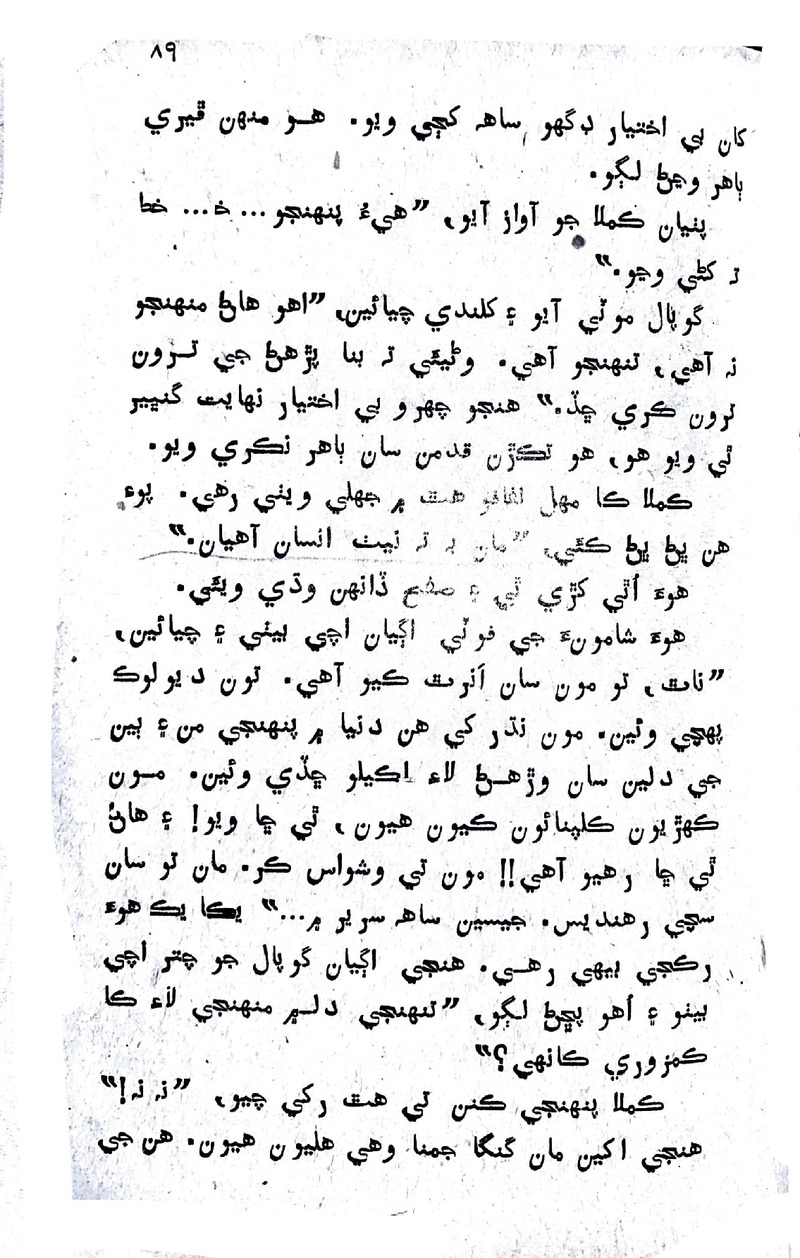 ۸۹
کان بي اختيار ڊگهو ساهہ کڄي ويو. هو منهن ڦيري
ٻاهر وڃڻ لڳو.
پٺيان ڪملا جو آواز آيو، ”هيءُ پنهنجو... خ... خط
تہ کڻي وڃو.“
گوپال موٽي آيو ۽ کلندي چيائين، ”اهو هاڻ منهنجو
نہ آهي، تنهنجو آهي. وڻيئي تہ بنا پڙهڻ جي ٽرون
ٽرون ڪري ڇڏ.“ هنجو چهرو بي اختيار نهايت گنڀير
ٿي ويو هو، هو تڪڙن قدمن سان ٻاهر نڪري ويو.
ڪملا ڪا مهل لفافو هٿ ۾ جهلي ويٺي رهي. پوءِ
هن ڀڻ ڀڻ ڪئي، ”مان بہ تہ نيٺ انسان آهيان.“
هوءَ اُٿي کڙي ٿي ۽ صفحي ڏانهن وڌي ويئي.
هوءَ شامونءَ جي فوٽي اڳيان اچي بيٺي ۽ چيائين،
”ناٿ، تو مون سان اَنرٿ ڪيو آهي. تون ديولوڪ
پهچي وئين. مون نڌر کي هن دنيا ۾ پنهنجي من ۽ ٻين
جي دلين سان وڙهڻ لاءِ اڪيلو ڇڏي وئين. مون
ڪهڙيون ڪلپنائون ڪيون هيون، ٿي ڇا ويو! ۽ هاڻ
ٿي ڇا رهيو آهي!! مون تي وشواس ڪر. مان تو سان
سچي رهنديس. جيسين ساهہ سرير ۾...“ يڪا يڪ هوءَ
رڪجي بيهي رهي. هنجي اڳيان گوپال جو چتر اچي
بيٺو ۽ اُهو پڇڻ لڳو، ”تنهنجي دل ۾ منهنجي لاءِ ڪا
ڪمزوري ڪانهي؟“
ڪملا پنهنجي ڪنن تي هٿ رکي چيو، ”نہ نہ!“
هنجي اکين مان گنگا جمنا وهي هليون هيون. هن جي